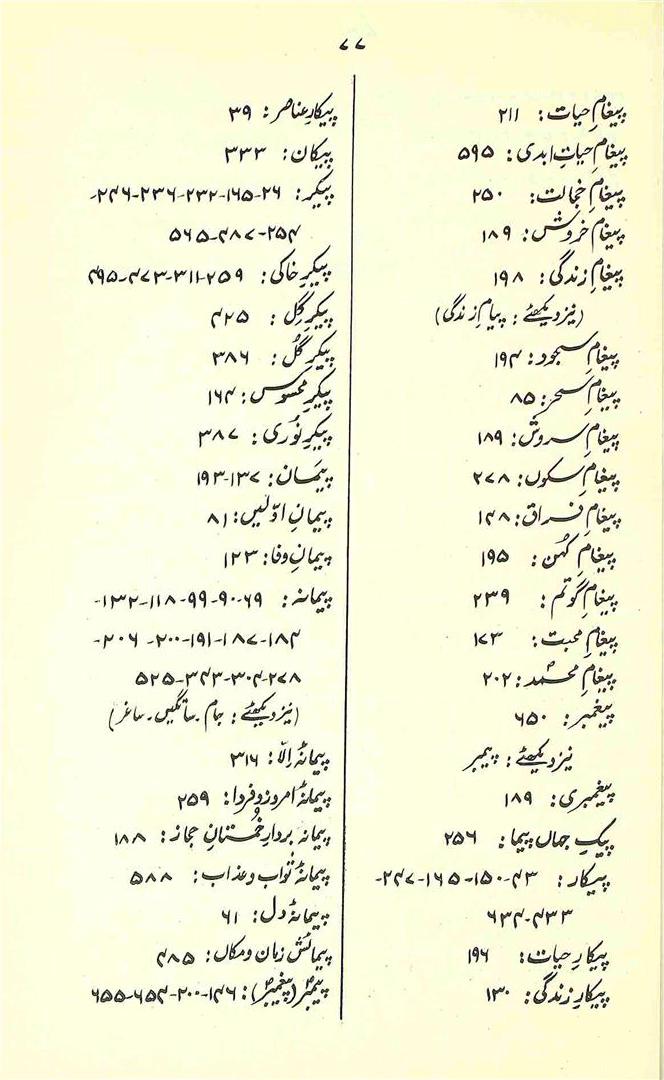 ۷۷
پیغامِ حیات: ۲۱۱
پیغامِ حیاتِ ابدی: ۵۹۵
پیغامِ خجالت: ۲۵۰
پیغامِ خروش: ۱۸۹
پیغامِ زندگی: ۱۹۸
(نیز دیکھئے: پیامِ زندگی)
پیغامِ سجود: ۱۹۴
پیغامِ سحر: ۸۵
پیغامِ سروش: ۱۸۹
پیغامِ سکوں: ۲۷۸
پیغامِ فراق: ۱۴۸
پیغامِ کہُن: ۱۹۵
پیغامِ گوتم: ۲۳۹
پیغامِ محبت: ۱۷۳
پیغامِ محمدؐ: ۲۰۲
پیغمبر: ۶۵۰
نیز دیکھئے: پیمبر
پیغمبری: ۱۸۹
پیکِ جہاں پیما: ۲۵۶
پیکار: ۴۳-۱۵۰-۱۶۵-۲۴۷-
۴۳۳-۶۳۴
پیکارِ حیات: ۱۹۶
پیکارِ زندگی: ۱۳۰
پیکارِ عناصر: ۳۹
پیکان: ۳۳۳
پیکر: ۲۶-۱۶۵-۲۳۲-۲۳۶-۲۴۶-
۲۵۴-۴۸۷-۵۶۵
پیکرِ خاکی: ۲۵۹-۳۱۱-۴۷۳-۴۹۵
پیکرِ گِل: ۴۲۵
پیکرِ گُل: ۳۸۶
پیکرِ محسوس: ۱۶۴
پیکرِ نُوری: ۳۸۷
پیمَان: ۱۳۷-۱۹۳
پیمانِ اوّلیں: ۸۱
پیمانِ وفا: ۱۲۳
پیمانہ: ۶۹-۹۰-۹۹-۱۱۸-۱۳۲-
۱۸۴-۱۸۷-۱۹۱-۲۰۰-۲۰۶-
۲۷۸-۳۰۴-۳۴۳-۵۲۵
(نیز دیکھئے: جام۔ساتگیں۔ساغر)
پیمانۂ اِلّا: ۳۱۶
پیمانۂ امروز و فردا: ۲۵۹
پیمانہ بردارِ خُمستانِ حجاز: ۱۸۸
پیمانۂ ثواب و عذاب: ۵۸۸
پیمانۂ دل: ۶۱
پیمائشِ زمان و مکاں: ۴۸۵
پیمبرؐ (پیغمبرؐ): ۱۴۶-۲۰۰-۶۵۴-۶۵۵